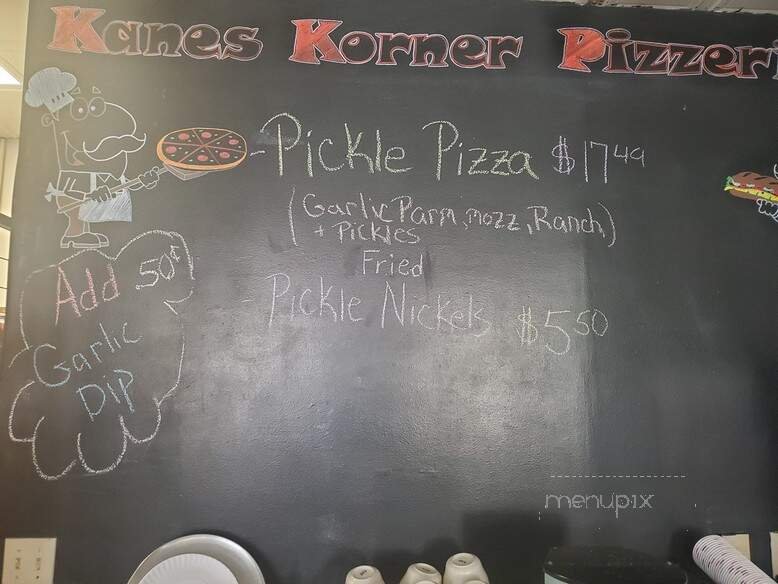 Kanes Korner Pizzer
- Pickle Pizza $17 49
(Garlic Parm, mozz, Ranch,)
+ Pickles
Fried
Pickle Nickels $5 50
Add 50¢
Garlic
Dip
menupix